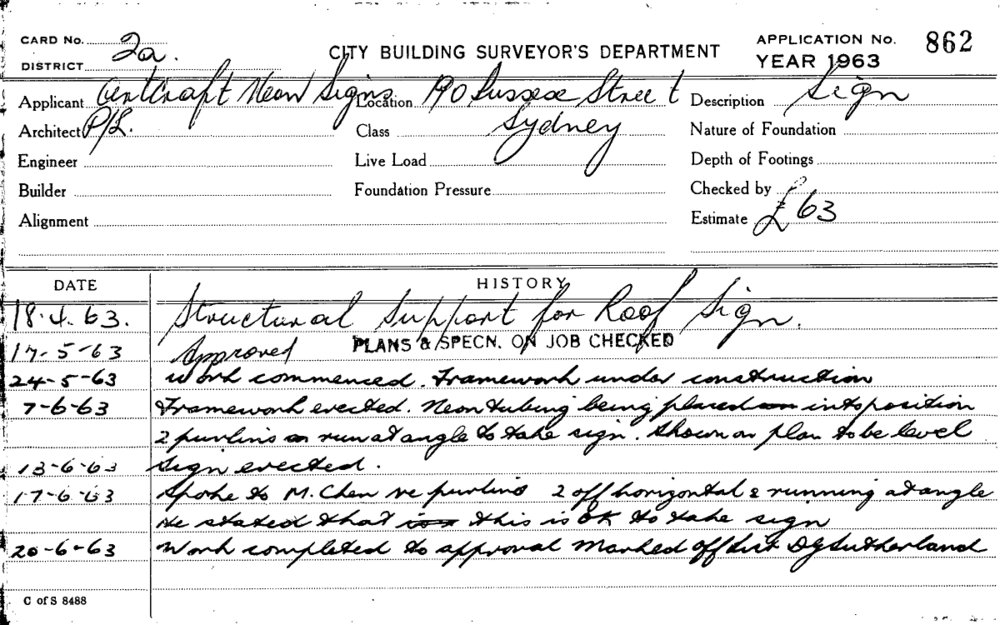 CARD No. 2a.
DISTRICT
CITY BUILDING SURVEYOR'S DEPARTMENT
APPLICATION No. 862
YEAR 1963
Applicant Artcraft Neon Signs P/L.
Location 190 Sussex Street Sydney
Description Sign
Architect
Class
Nature of Foundation
Engineer
Live Load
Depth of Footings
Builder
Foundation Pressure
Checked by
Alignment
Estimate £63
DATE HISTORY
18.4.63. Structural Support for Roof Sign.
17-5-63 Approved PLANS & SPECN. ON JOB CHECKED
24-5-63 Work commenced. Framework under construction
7-6-63 Framework erected. Neon tubing being placed into position
2 purlins run at angle to take sign. Shown on plan to be level
13-6-63 Sign erected.
17-6-63 Spoke to M. Chen re purlins 2 off horizontal & running at angle
He stated that this is OK to take sign
20-6-63 Work completed to approval Marked off list DG Sutherland
C of S 8488